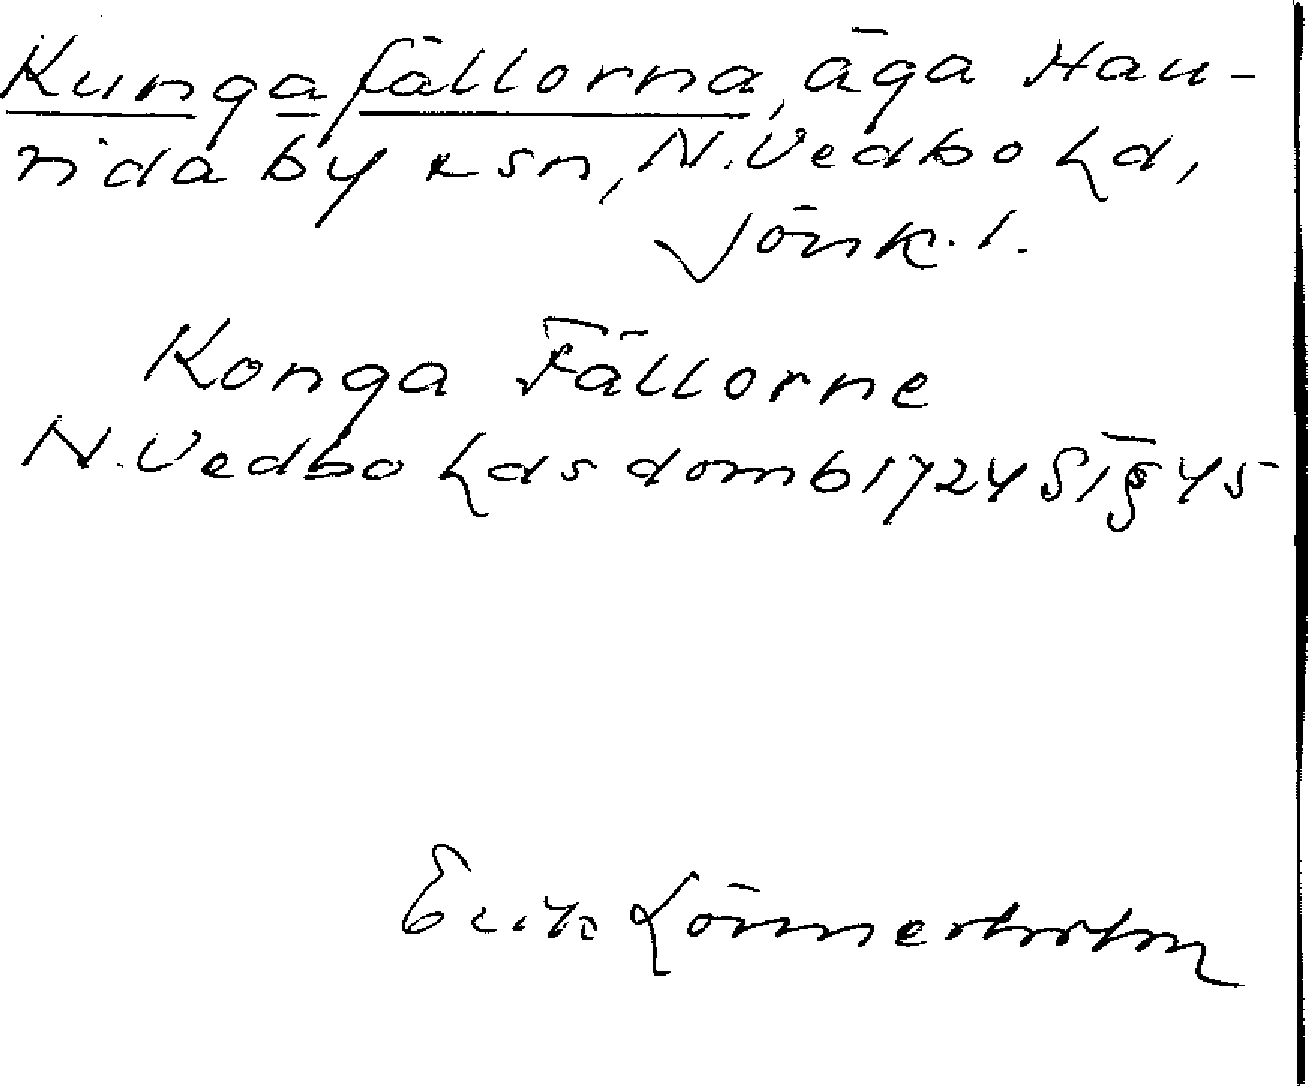 Kungafällorna, äga Hau-
rida by o sn, N. Vedbo hd,
Jönk. l.
Konga Fällorne
N. Vedbo hds domb 1724 § 45
Erik Lönnerholm